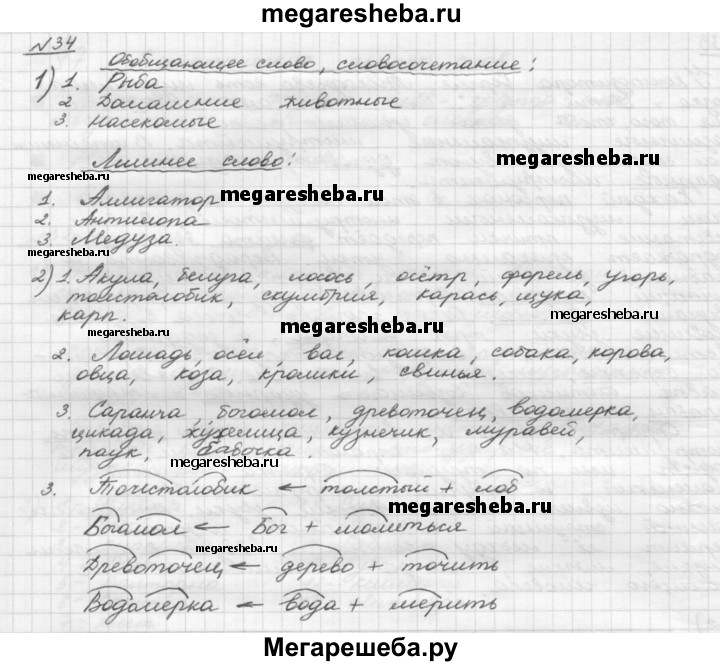 megaresheba.ru
№34
Обобщающее слово, словосочетание:
1) 1. Рыба
2 Домашние животные
3. насекомые
Лишнее слово:
megaresheba.ru
megaresheba.ru
1. Аллигатор
megaresheba.ru
2. Антилопа
3. Медуза.
megaresheba.ru
2) 1. Акула, белуга, лосось, осётр, форель, угорь,
толстолобик, скумбрия, карась, щука,
карп.
megaresheba.ru
megaresheba.ru
megaresheba.ru
2. Лошадь, осёл, вол, кошка, собака, корова,
овца, коза, кролики, свинья.
3. Саранча, богомол, древоточец, водомерка,
цикада, жужелица, кузнечик, муравей,
паук, бабочка.
megaresheba.ru
3. Толстолобик ← толстый + лоб
megaresheba.ru
Богомол ← Бог + молиться
megaresheba.ru
Древоточец ← дерево + точить
megaresheba.ru
Водомерка ← вода + мерить
Мегарешеба.ру